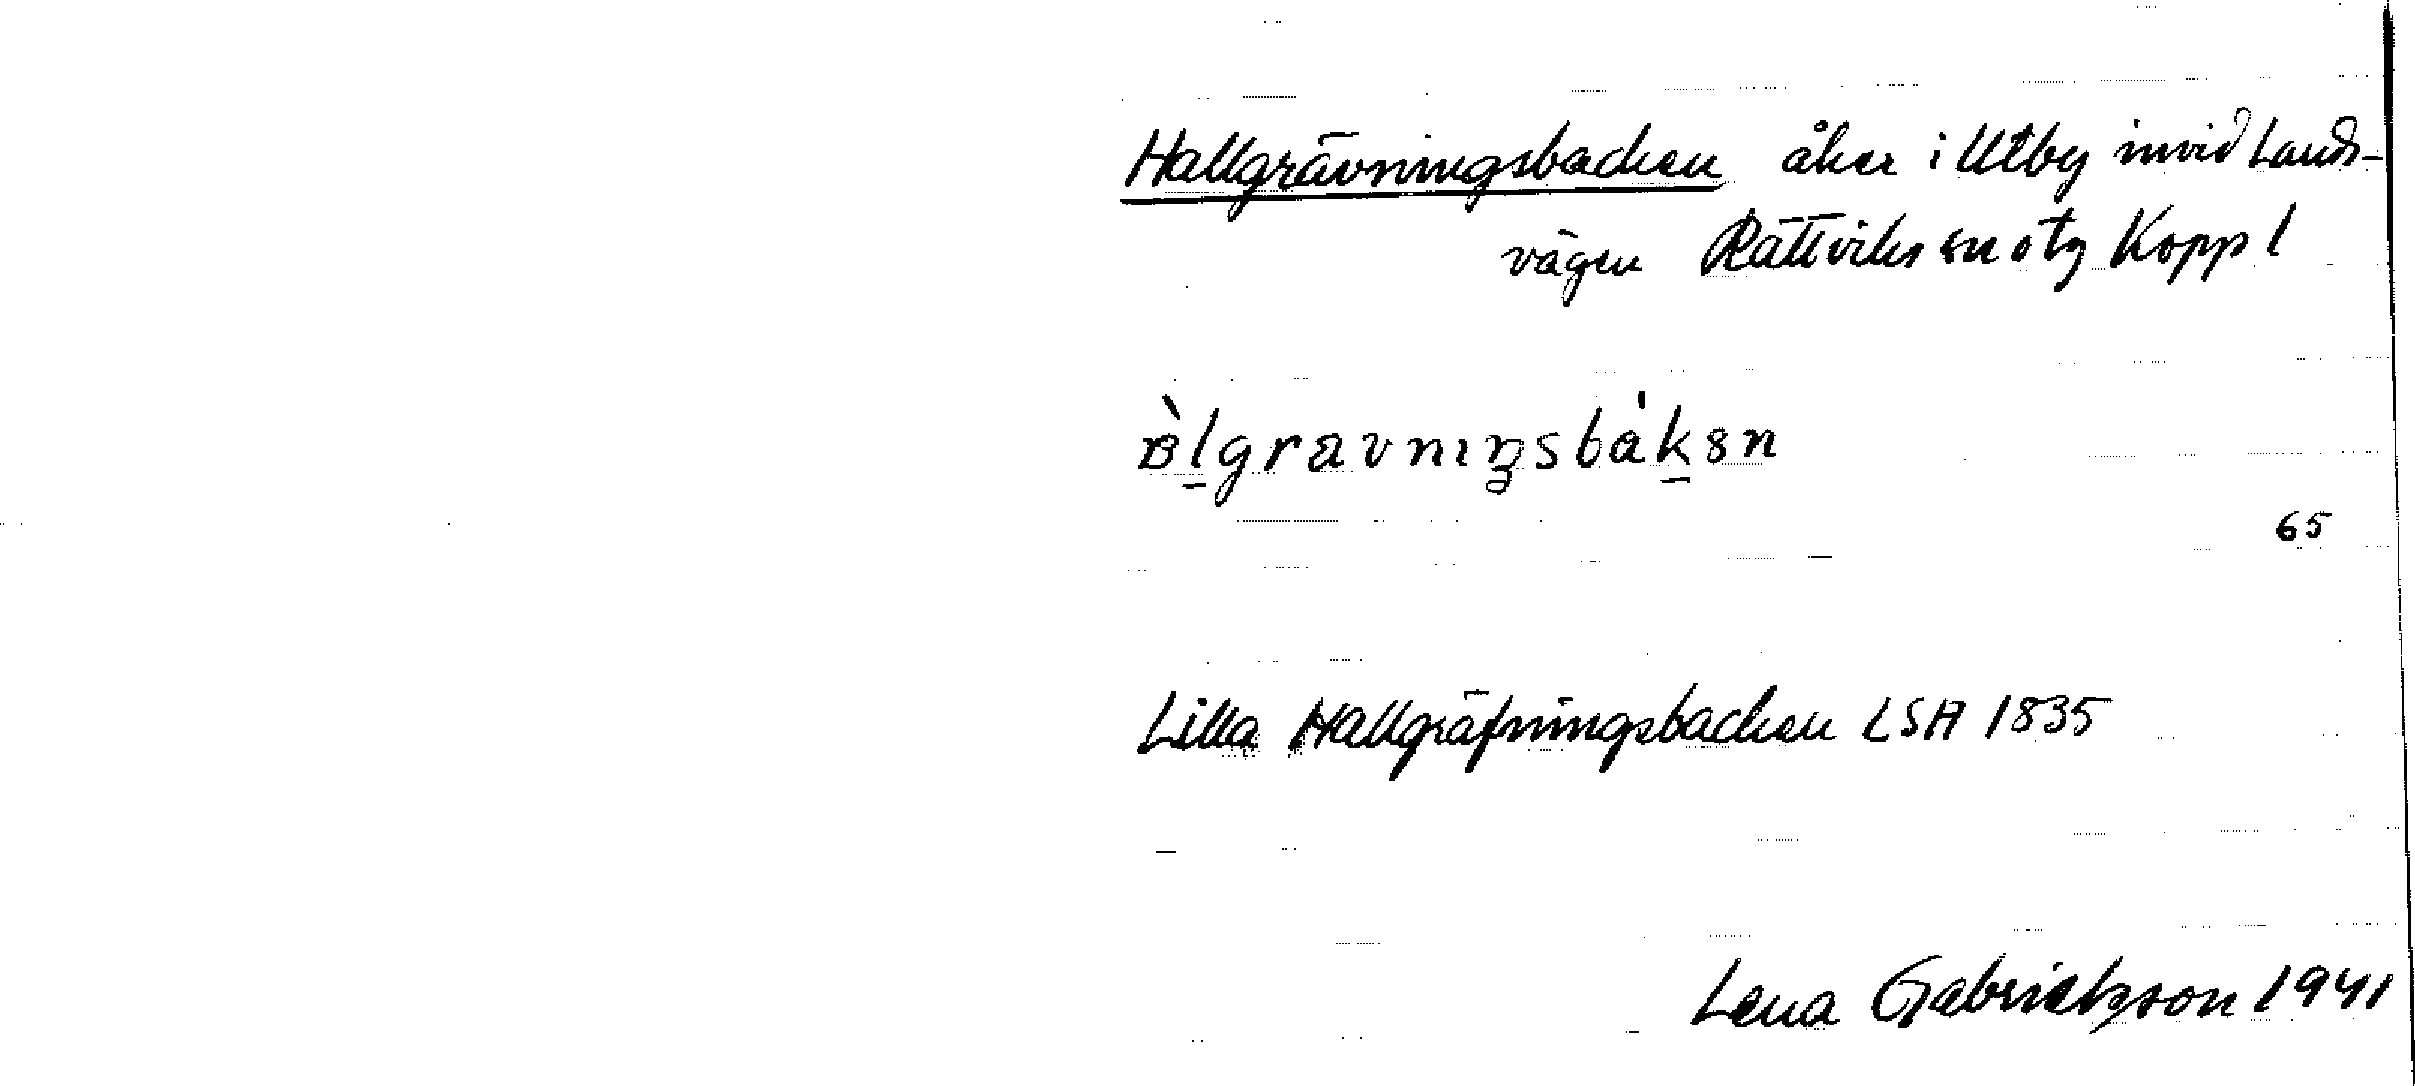 Hallgrävningsbacken åker i Utby invid Lands-
vägen Rättviks sn o tg Kopp l
àlgravnıŋsbákən
65
Lilla Hallgräfningsbacken LSA 1835
Lena Gabrielsson 1941